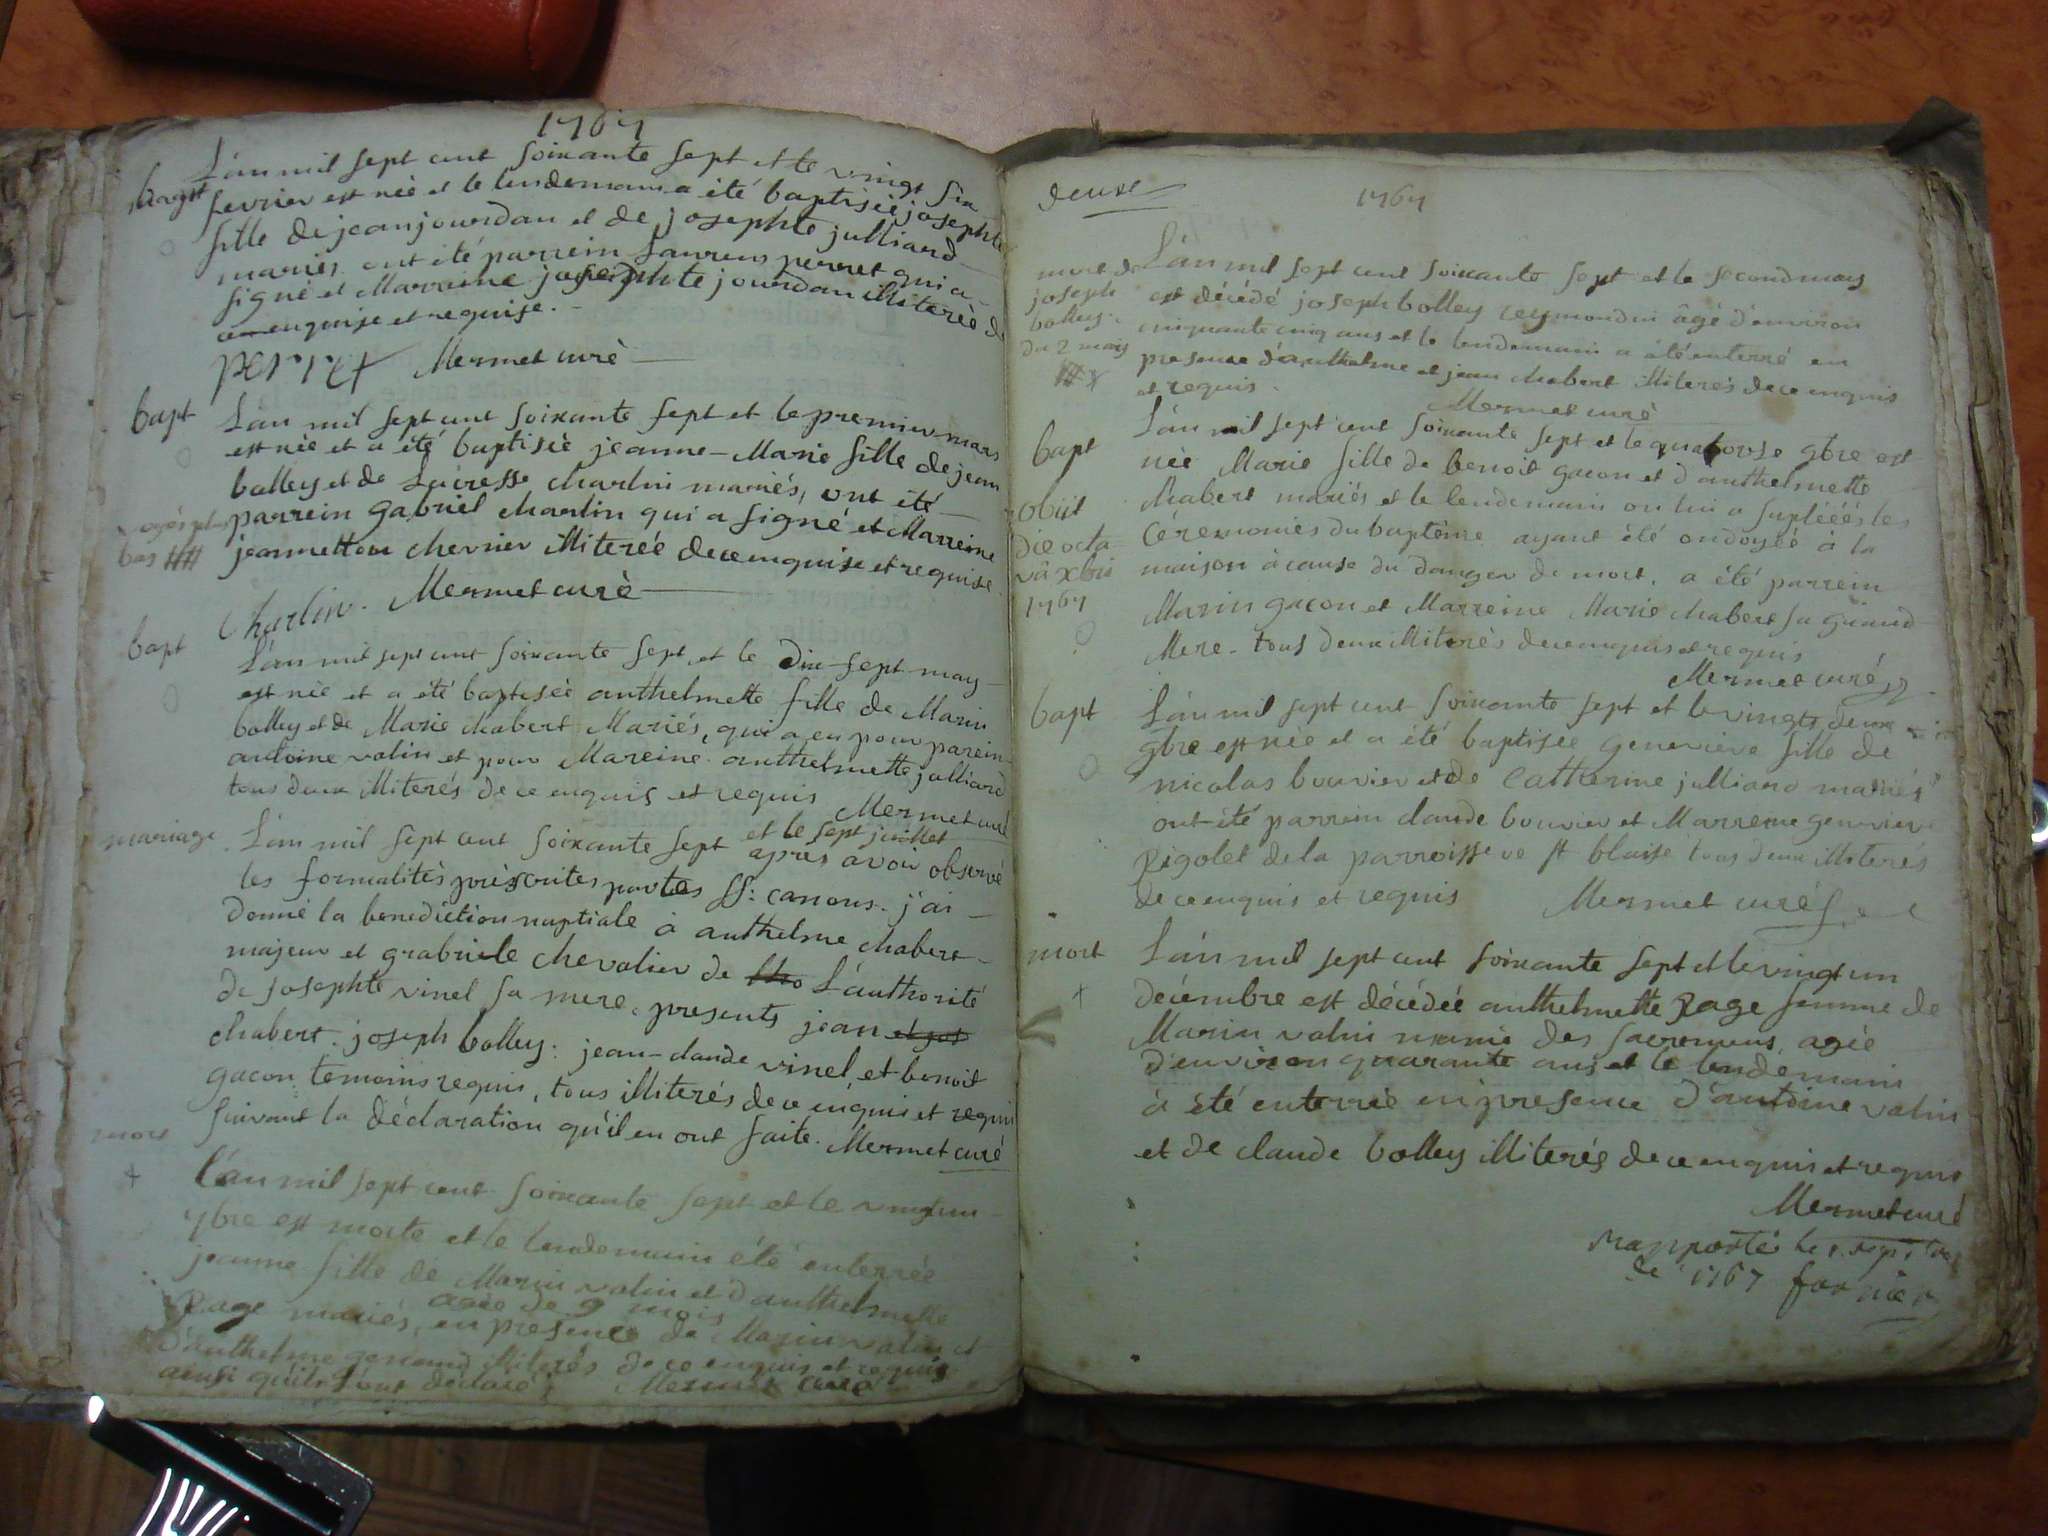 1767
bapt
L'an mil sept cent soixante sept et le vingt six
fevrier est née et le lendemain a été baptisée josephte
fille de jean jourdan et de josephte julliard
mariés ont été parrein Laurens perret qui a
signé et Marreine josephte jourdan illiterée de
ce enquise et requise.
perret Mermet curé
bapt
L'an mil sept cent soixante sept et le premier mars
est née et a été baptisée jeanne-Marie fille de jean
bolley et de Lucresse charlin mariés, ont été
parrein gabriel charlin qui a signé et Marreine
jeannette chevrier illiterée de ce enquise et requise
bas
Charlin. Mermet curé
bapt
L'an mil sept cent soixante sept et le dix-sept may
est née et a été baptisée anthelmette fille de Marin
bolley et de Marie chabert Mariés, qui a eu pour parein
antoine valin et pour Mareine anthelmette julliard
tous deux illiterés de ce enquis et requis Mermet curé
mariage
L'an mil sept cent soixante sept et le sept juillet
après avoir observé
les formalités prèscrites par les SS: canons. j'ai
donné la benediction nuptiale à anthelme chabert
majeur et grabriele chevalier de L'authorité
de josephte vinel sa mere, presents jean
chabert. joseph bolley: jean-claude vinel, et benoit
gacon temoins requis, tous illiterés de ce enquis et requis
suivant la déclaration qu'il en ont faite. Mermet curé
mort
L'an mil sept cent soixante sept et le vingt un
est morte et le lendemain été enterrée
jeanne fille de Marin valin et d'anthelmette
agée de 9 mois
Rage mariés, en presence de Marin valin et
d'anthelme illiterés de ce enquis et requis
ainsi qu'ils l'ont déclaré: Mermet curé
deuse
1767
mort de
joseph
bolley.
du 2 mars
L'an mil sept cent soixante sept et le second mars
est décédé joseph bolley âgé d'environ
cinquante cinq ans et le lendemain a été enterré en
presence d'anthelme et jean chabert illiterés de ce enquis
et requis.
Mermet curé
bapt
L'an mil sept cent soixante sept et le quatorse 9bre est
née Marie fille de benoit gacon et d'anthelmette
chabert mariés et le lendemain on lui a supléées les
céremonies du baptême ayant été ondoyée à la
maison à cause du danger de mort. a été parrein
Marin gacon et Marreine Marie chabert sa grand
Mere. tous deux illiterés de ce enquis et requis
obiit
die octa
va xbris
1767
Mermet curé
bapt
L'an mil sept cent soixante sept et le vingt deux
9bre est née et a été baptisée Geneviève fille de
nicolas bouvier et de Catherine julliard mariés
ont été parrein claude bouvier et Marreine genevieve
Rigolet de la parroisse de st blaise tous deux illiterés
de ce enquis et requis Mermet curé
mort
L'an mil sept cent soixante sept et le vingt un
décembre est décédée anthelmette Rage femme de
Marin valin munie des sacremens, agée
d'environ quarante ans et le lendemain
à été enterrée en presence d'antoine valin
et de claude bolley illiterés de ce enquis et requis
Mermet curé
de 1767